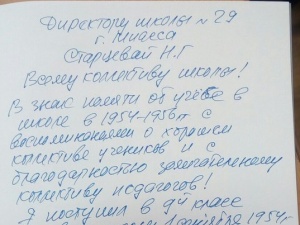 Директору школы № 29
г. Миасса
Старцевай Н.Г
Всему коллективу школы!
В знак памяти об учёбе в
школе в 1954-1956гг с
воспоминанием о хорошем
колективе учеников и с
благодарностью замечательному
коллективу педагогов!
Я поступил в 9й класс
1 сентября 1954г